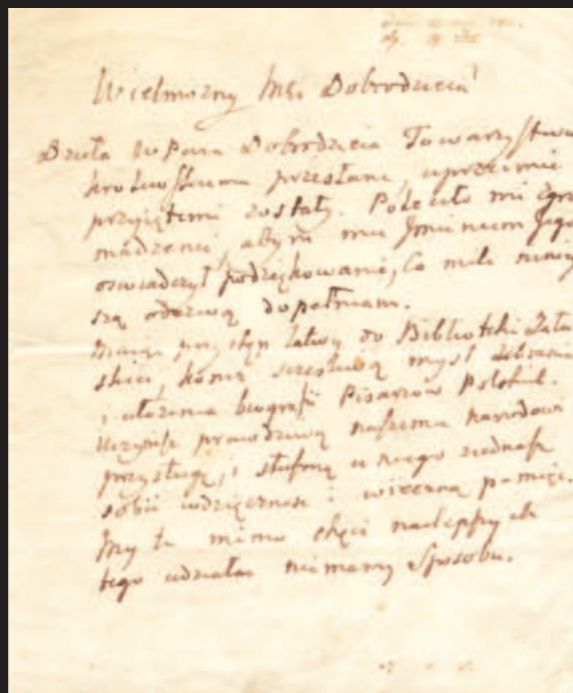 Wielmożny Mci Dobrodzieju!
Dzieła WPana Dobrodzieia Towarzystwu
przesłane, uprzeimie
przyiętemi zostały. Poleciło mi zgro
madzenie, abym mu Imieniem Jego
oswiadczył podziękowanie, co mile niniey
szą odezwą dopełniam.
Maiąc przystęp łatwy do Biblioteki Zału
skich, szczęśliwą mysl zebrania
i ułożenia biografii Pisarzow Polskich.
prawdziwą naszemu narodowi
przysługę, i słuszną u niego ziednasz
sobie wdzięcznosc i wieczną pamięc.
My tu mimo chęci naylepszych
tego udziałac niemamy sposobu.